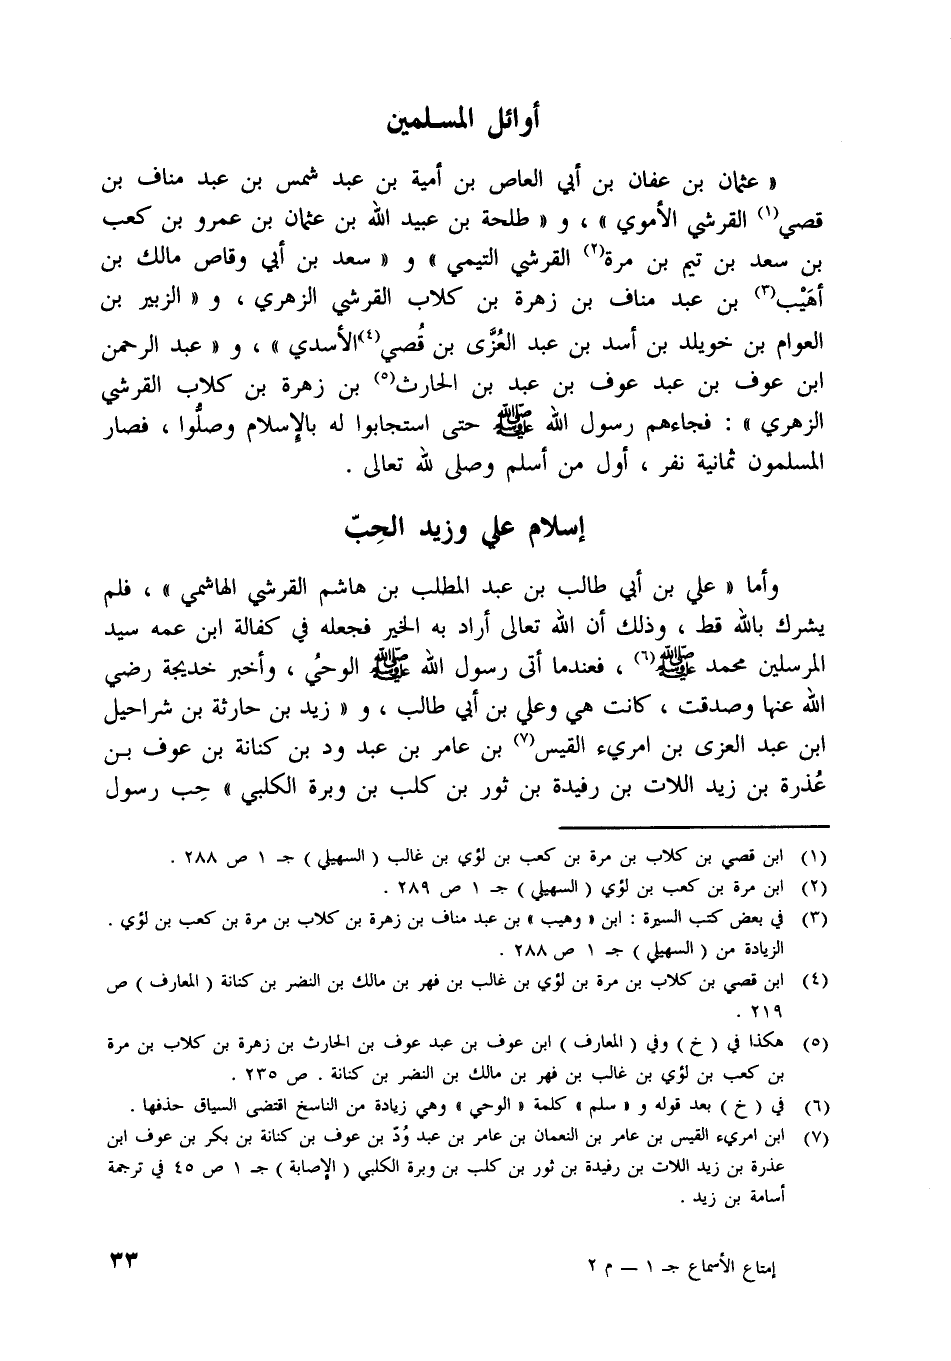 أوائل المسلمين
« عثمان بن عفان بن أبي العاص بن أمية بن عبد شمس بن عبد مناف بن
قصي(١) القرشي الأموي » ، و « طلحة بن عبيد الله بن عثمان بن عمرو بن كعب
بن سعد بن تيم بن مرة(٢) القرشي التيمي » و « سعد بن أبي وقاص مالك بن
أهَيْب(٣) بن عبد مناف بن زهرة بن كلاب القرشي الزهري ، و « الزبير بن
العوام بن خويلد بن أسد بن عبد العُزَّى بن قُصي(٤)الأسدي » ، و « عبد الرحمن
ابن عوف بن عبد عوف بن عبد بن الحارث(٥) بن زهرة بن كلاب القرشي
الزهري » : فجاءهم رسول الله ﷺ حتى استجابوا له بالإسلام وصلُّوا ، فصار
المسلمون ثمانية نفر ، أول من أسلم وصلى لله تعالى .
إسلام علي وزيد الحِبّ
وأما « علي بن أبي طالب بن عبد المطلب بن هاشم القرشي الهاشمي » ، فلم
يشرك بالله قط ، وذلك أن الله تعالى أراد به الخير فجعله في كفالة ابن عمه سيد
المرسلين محمد ﷺ(٦) ، فعندما أتى رسول الله ﷺ الوحيُ ، وأخبر خديجة رضي
الله عنها وصدقت ، كانت هي وعلي بن أبي طالب ، و « زيد بن حارثة بن شراحيل
ابن عبد العزى بن امريء القيس(٧) بن عامر بن عبد ود بن كنانة بن عوف بـن
عُذرة بن زيد اللات بن رفيدة بن ثور بن كلب بن وبرة الكلبي » حِب رسول
(١) ابن قصي بن كلاب بن مرة بن كعب بن لؤي بن غالب ( السهيلي ) جـ ١ ص ٢٨٨ .
(٢) ابن مرة بن كعب بن لؤي ( السهيلي ) جـ ١ ص ٢٨٩ .
(٣) في بعض كتب السيرة : ابن « وهيب » بن عبد مناف بن زهرة بن كلاب بن مرة بن كعب بن لؤي .
الزيادة من ( السهيلي ) جـ ١ ص ٢٨٨ .
(٤) ابن قصي بن كلاب بن مرة بن لؤي بن غالب بن فهر بن مالك بن النضر بن كنانة ( المعارف ) ص
٢١٩ .
(٥) هكذا في ( خ ) وفي ( المعارف ) ابن عوف بن عبد عوف بن الحارث بن زهرة بن كلاب بن مرة
بن كعب بن لؤي بن غالب بن فهر بن مالك بن النضر بن كنانة . ص ٢٣٥ .
(٦) في ( خ ) بعد قوله و « سلم » كلمة « الوحي » وهي زيادة من الناسخ اقتضى السياق حذفها .
(٧) ابن امريء القيس بن عامر بن النعمان بن عامر بن عبد وُدّ بن عوف بن كنانة بن بكر بن عوف ابن
عذرة بن زيد اللات بن رفيدة بن ثور بن كلب بن وبرة الكلبي ( الإصابة ) جـ ١ ص ٤٥ في ترجمة
أسامة بن زيد .
إمتاع الأسماع جـ ١ ــ م ٢
٣٣